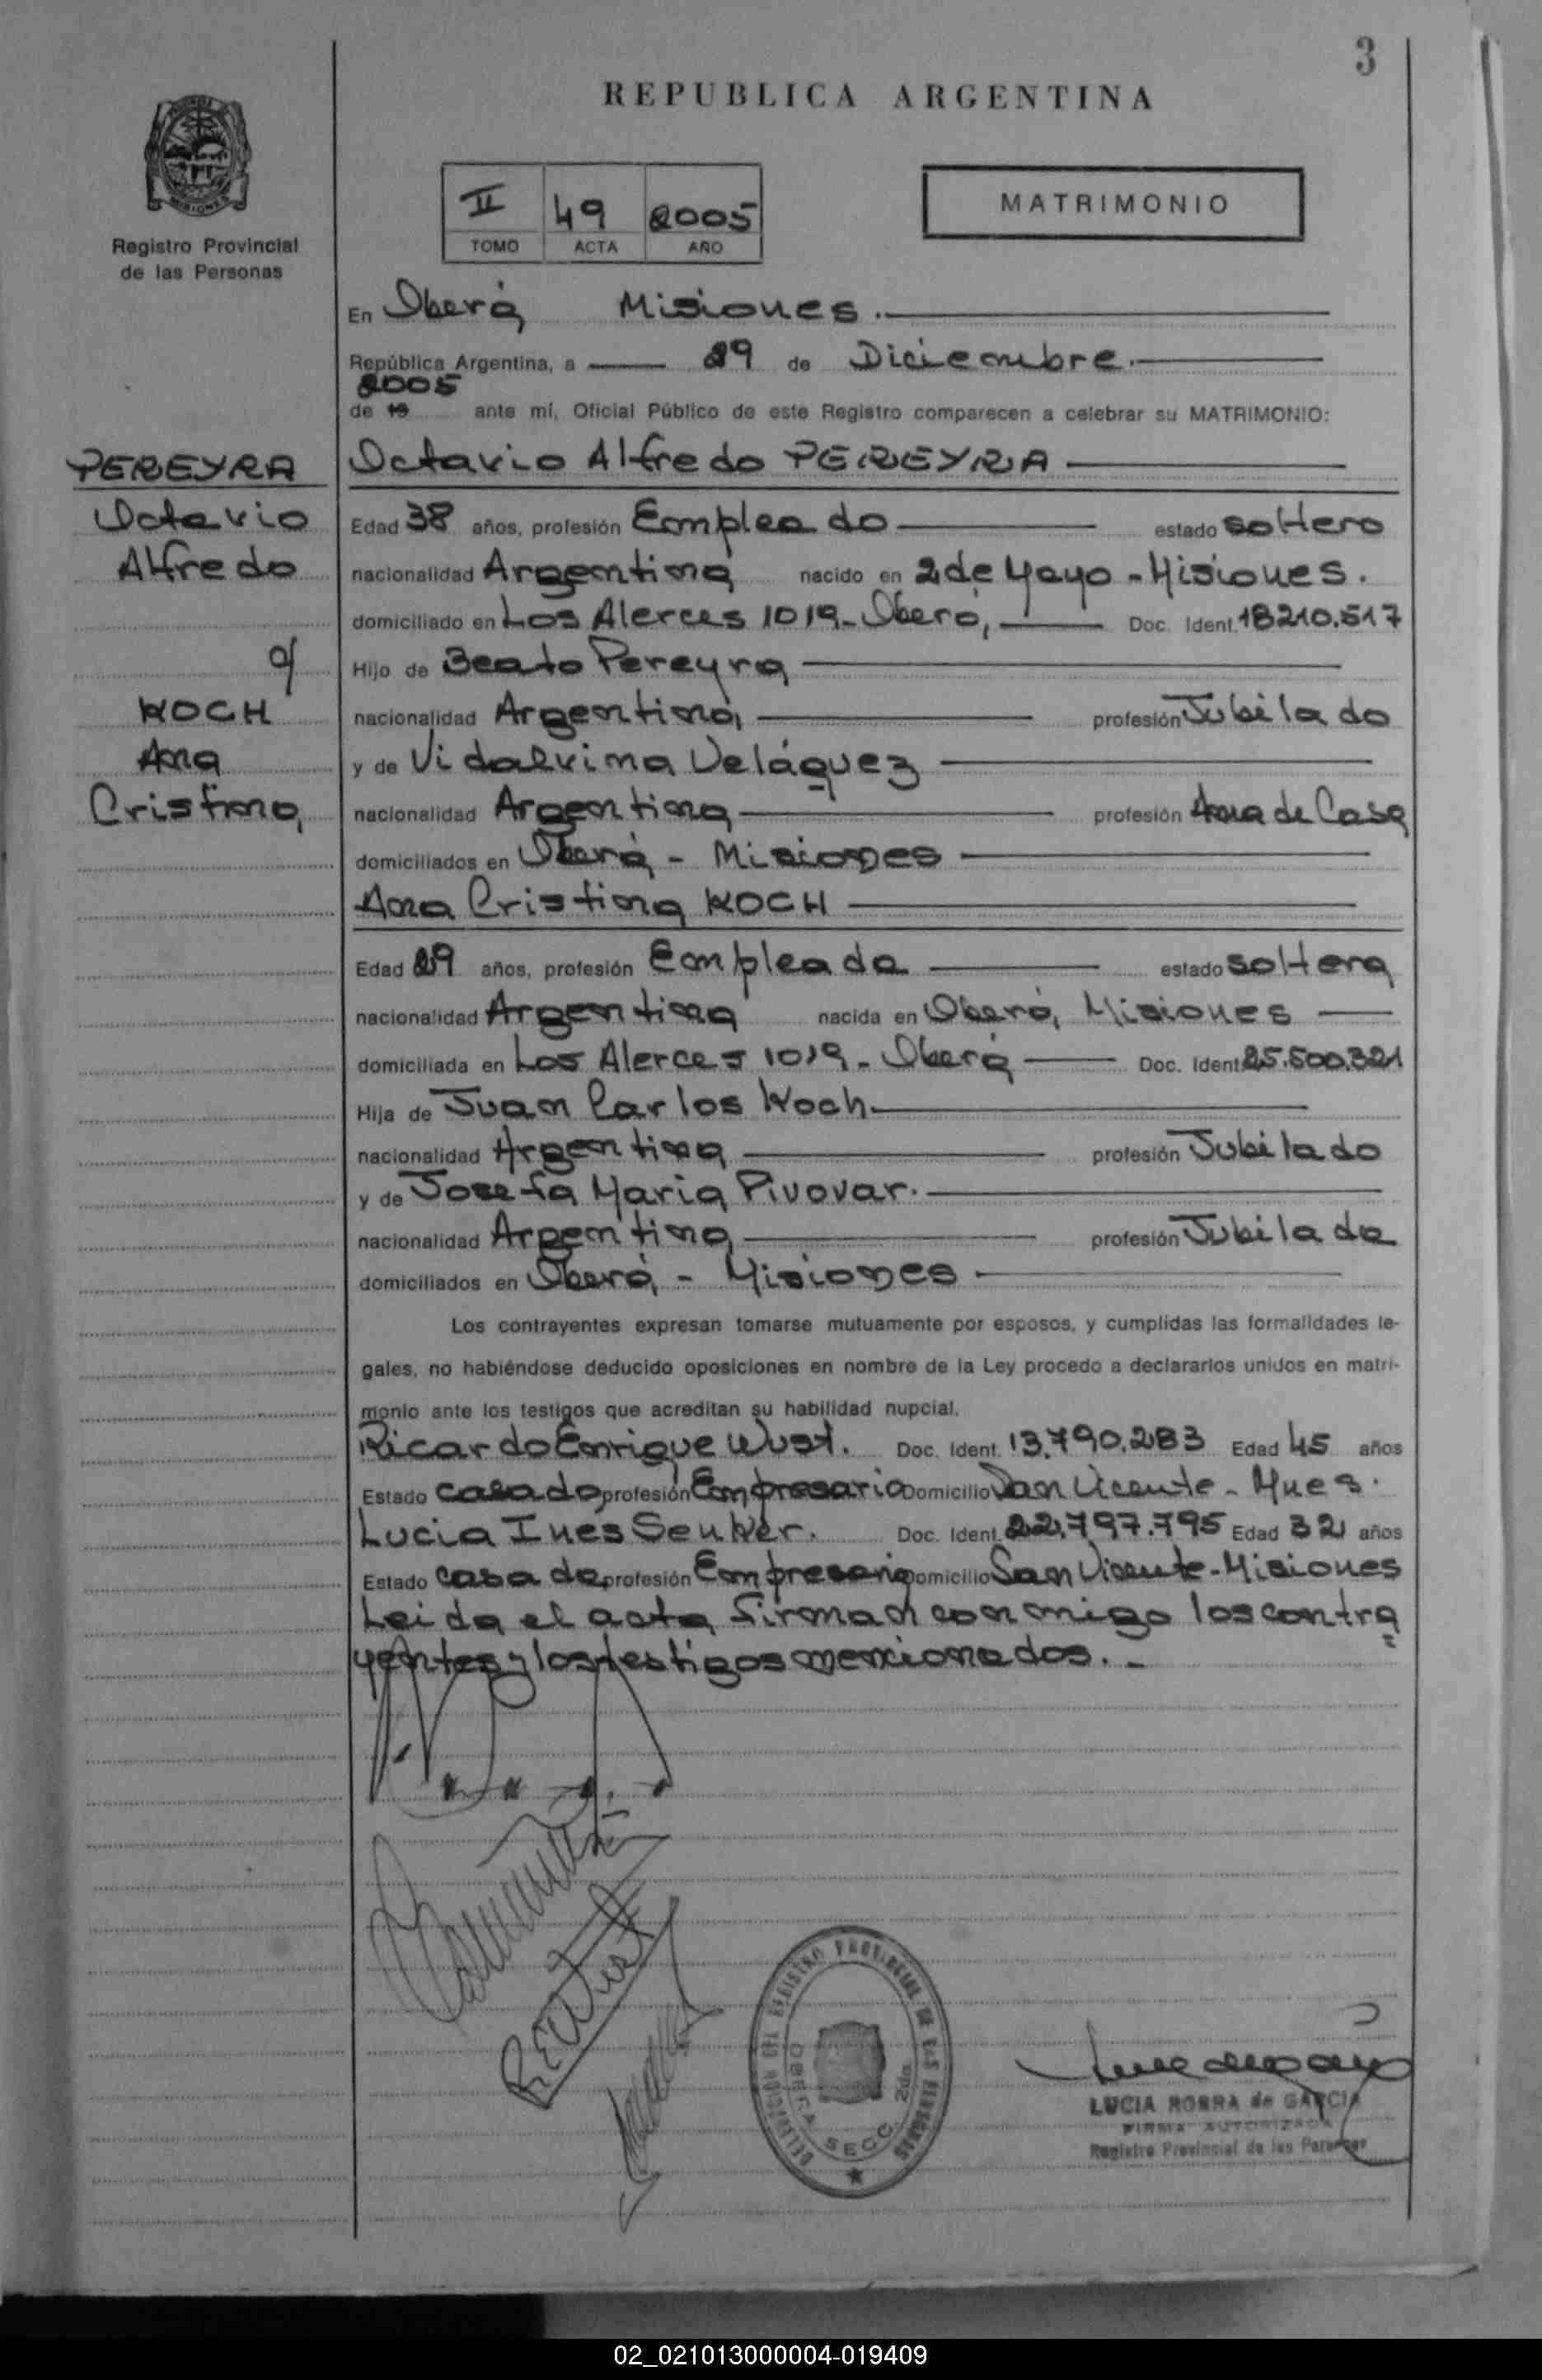 3
REPUBLICA ARGENTINA
MISIONES
Registro Provincial
de las Personas
II 49 2005
TOMO ACTA AÑO
MATRIMONIO
En Oberá Misiones.
República Argentina, a 29 de Diciembre.
2005
de 19 ante mí, Oficial Público de este Registro comparecen a celebrar su MATRIMONIO:
PEREYRA
Octavio
Alfredo
c/
KOCH
Ana
Cristina
Octavio Alfredo PEREYRA
Edad 38 años, profesión Empleado estado soltero
nacionalidad Argentina nacido en 2 de Mayo - Misiones.
domiciliado en Los Alerces 1019 - Oberá, Doc. Ident. 18210.517
Hijo de Beato Pereyra
nacionalidad Argentina, profesión Jubilado
y de Vidalvina Veláquez
nacionalidad Argentina profesión Ama de Casa
domiciliados en Oberá - Misiones
Ana Cristina KOCH
Edad 29 años, profesión Empleada estado soltera
nacionalidad Argentina nacida en Oberá, Misiones
domiciliada en Los Alerces 1019 - Oberá Doc. Ident. 25.500.321
Hija de Juan Carlos Koch
nacionalidad Argentina profesión Jubilado
y de Josefa Maria Pivovar.
nacionalidad Argentina profesión Jubilada
domiciliados en Oberá, - Misiones
Los contrayentes expresan tomarse mutuamente por esposos, y cumplidas las formalidades le-
gales, no habiéndose deducido oposiciones en nombre de la Ley procedo a declararlos unidos en matri-
monio ante los testigos que acreditan su habilidad nupcial.
Ricardo Enrique Wust. Doc. Ident. 13.790.283 Edad 45 años
Estado casado profesión Empresario Domicilio San Vicente - Mnes.
Lucia Inés Senker. Doc. Ident. 22.797.795 Edad 32 años
Estado casada profesión Empresaria Domicilio San Vicente - Misiones
Leida el acta, firman conmigo los contra
yentes y los testigos mencionados. -
REWust
DELEGACION DEL REGISTRO PROVINCIAL DE LAS PERSONAS
OBERA SECC. 2da.
LUCIA ROBRA de GARCIA
FIRMA AUTORIZADA
Registro Provincial de las Personas
02_021013000004-019409